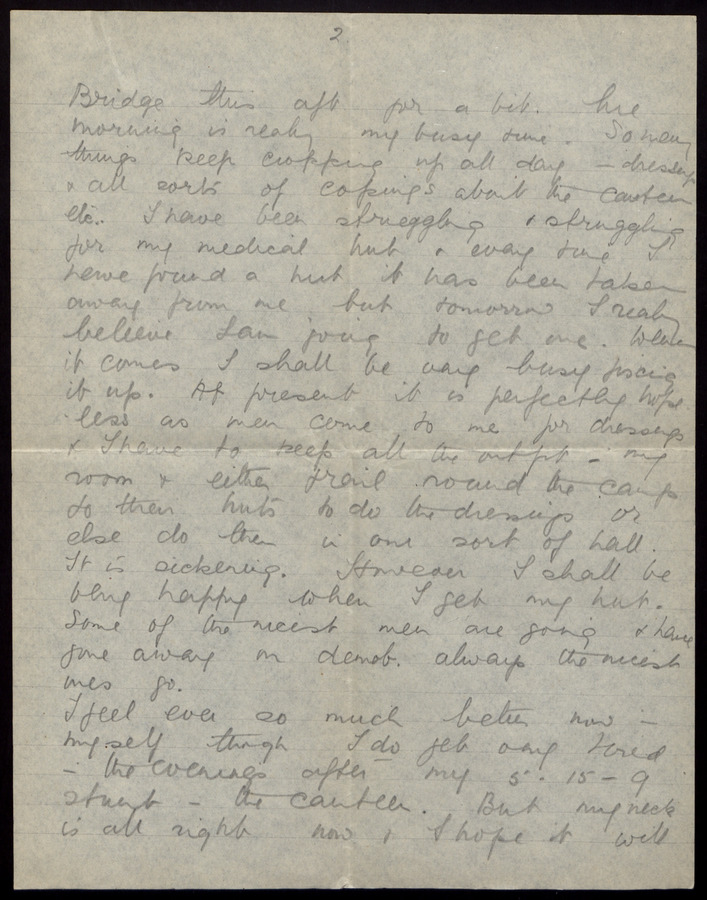 2
Bridge this aft for a bit. The
morning is really my busy time. So many
things keep cropping up all day - dressings
& all sorts of copings about the canteen
etc. I have been struggling & struggling
for my medical hut & every time I
have found a hut it has been taken
away from me but tomorrow I really
believe I am going to get one. When
it comes I shall be very busy fixing
it up. At present it is perfectly hope
less as men come to me for dressings
& I have to keep all the outfit in my
room & either trail round the camp
to their huts to do the dressings or
else do them in one sort of hall.
It is sickening. However I shall be
happy when I get my hut.
Some of the nicest men are going & have
gone away on demob. always the nicest
ones go.
I feel ever so much better now -
myself though I do get very tired
in the evenings after my 5.15 - 9
stunt in the canteen. But my neck
is all right now & I hope it will